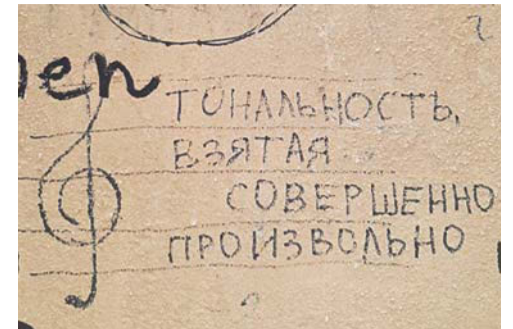 ТОНАЛЬНОСТЬ,
ВЗЯТАЯ
СОВЕРШЕННО
ПРОИЗВОЛЬНО